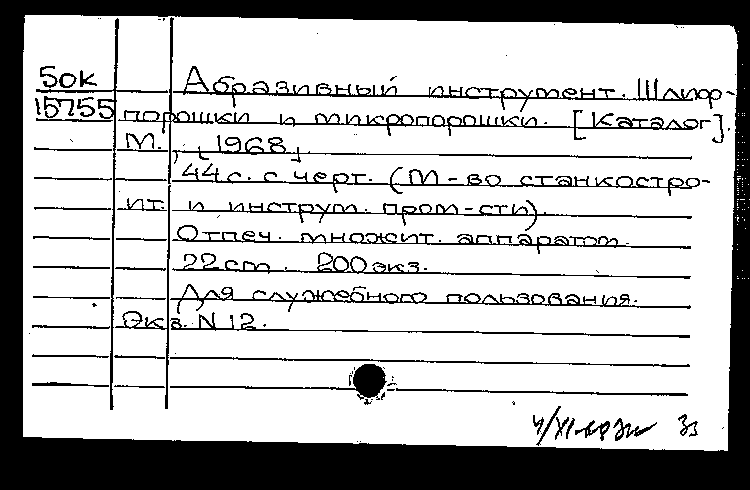 50к Абразивный инструмент. Шлиф-
15755 порошки и микропорошки. [Каталог].
М., [1968].
44 с. с черт. (М-во станкостро-
ит. и инструм. пром-сти).
Отпеч. множит. аппаратом.
22 cm. 200 экз.
Для служебного пользования.
Экз. N 12.
4/XI